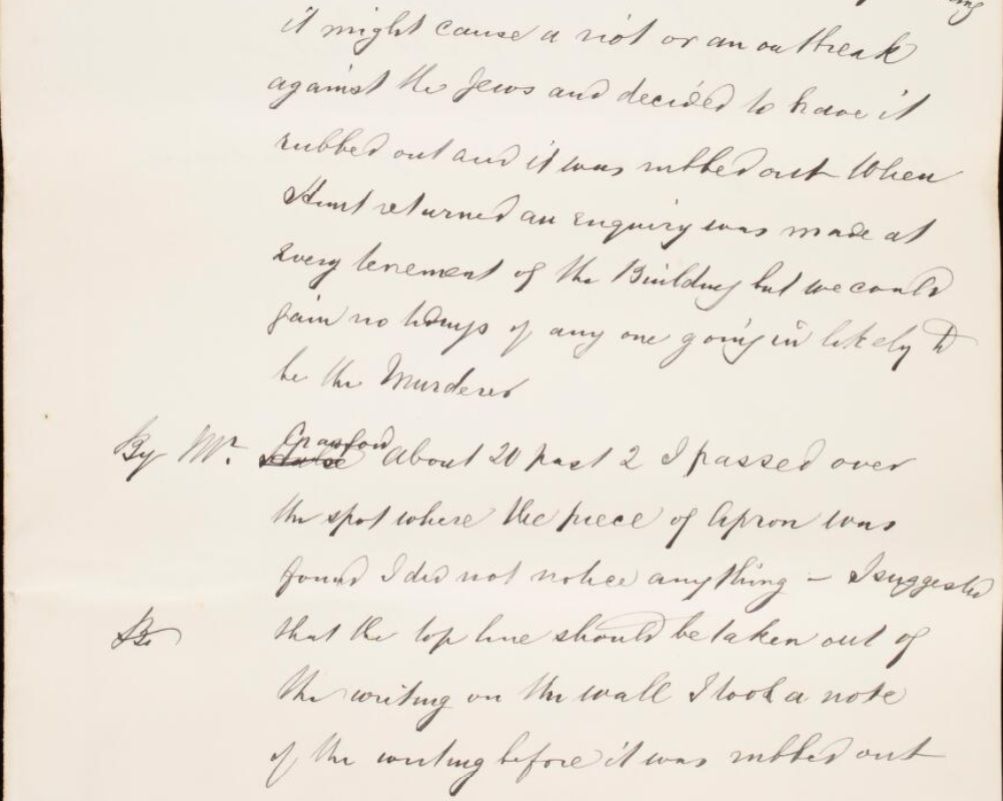 ing
it might cause a riot or an outbreak
against the Jews and decided to have it
rubbed out and it was rubbed out When
Hunt returned an enquiry was made at
every tenement of the Building but we could
gain no tidings of any one going in likely to
be the Murderer
By Mr. Crawford About 20 past 2 I passed over
the spot where the piece of Apron was
found I did not notice anything – I suggested
that the top line should be taken out of
the writing on the wall I took a note
of the writing before it was rubbed out